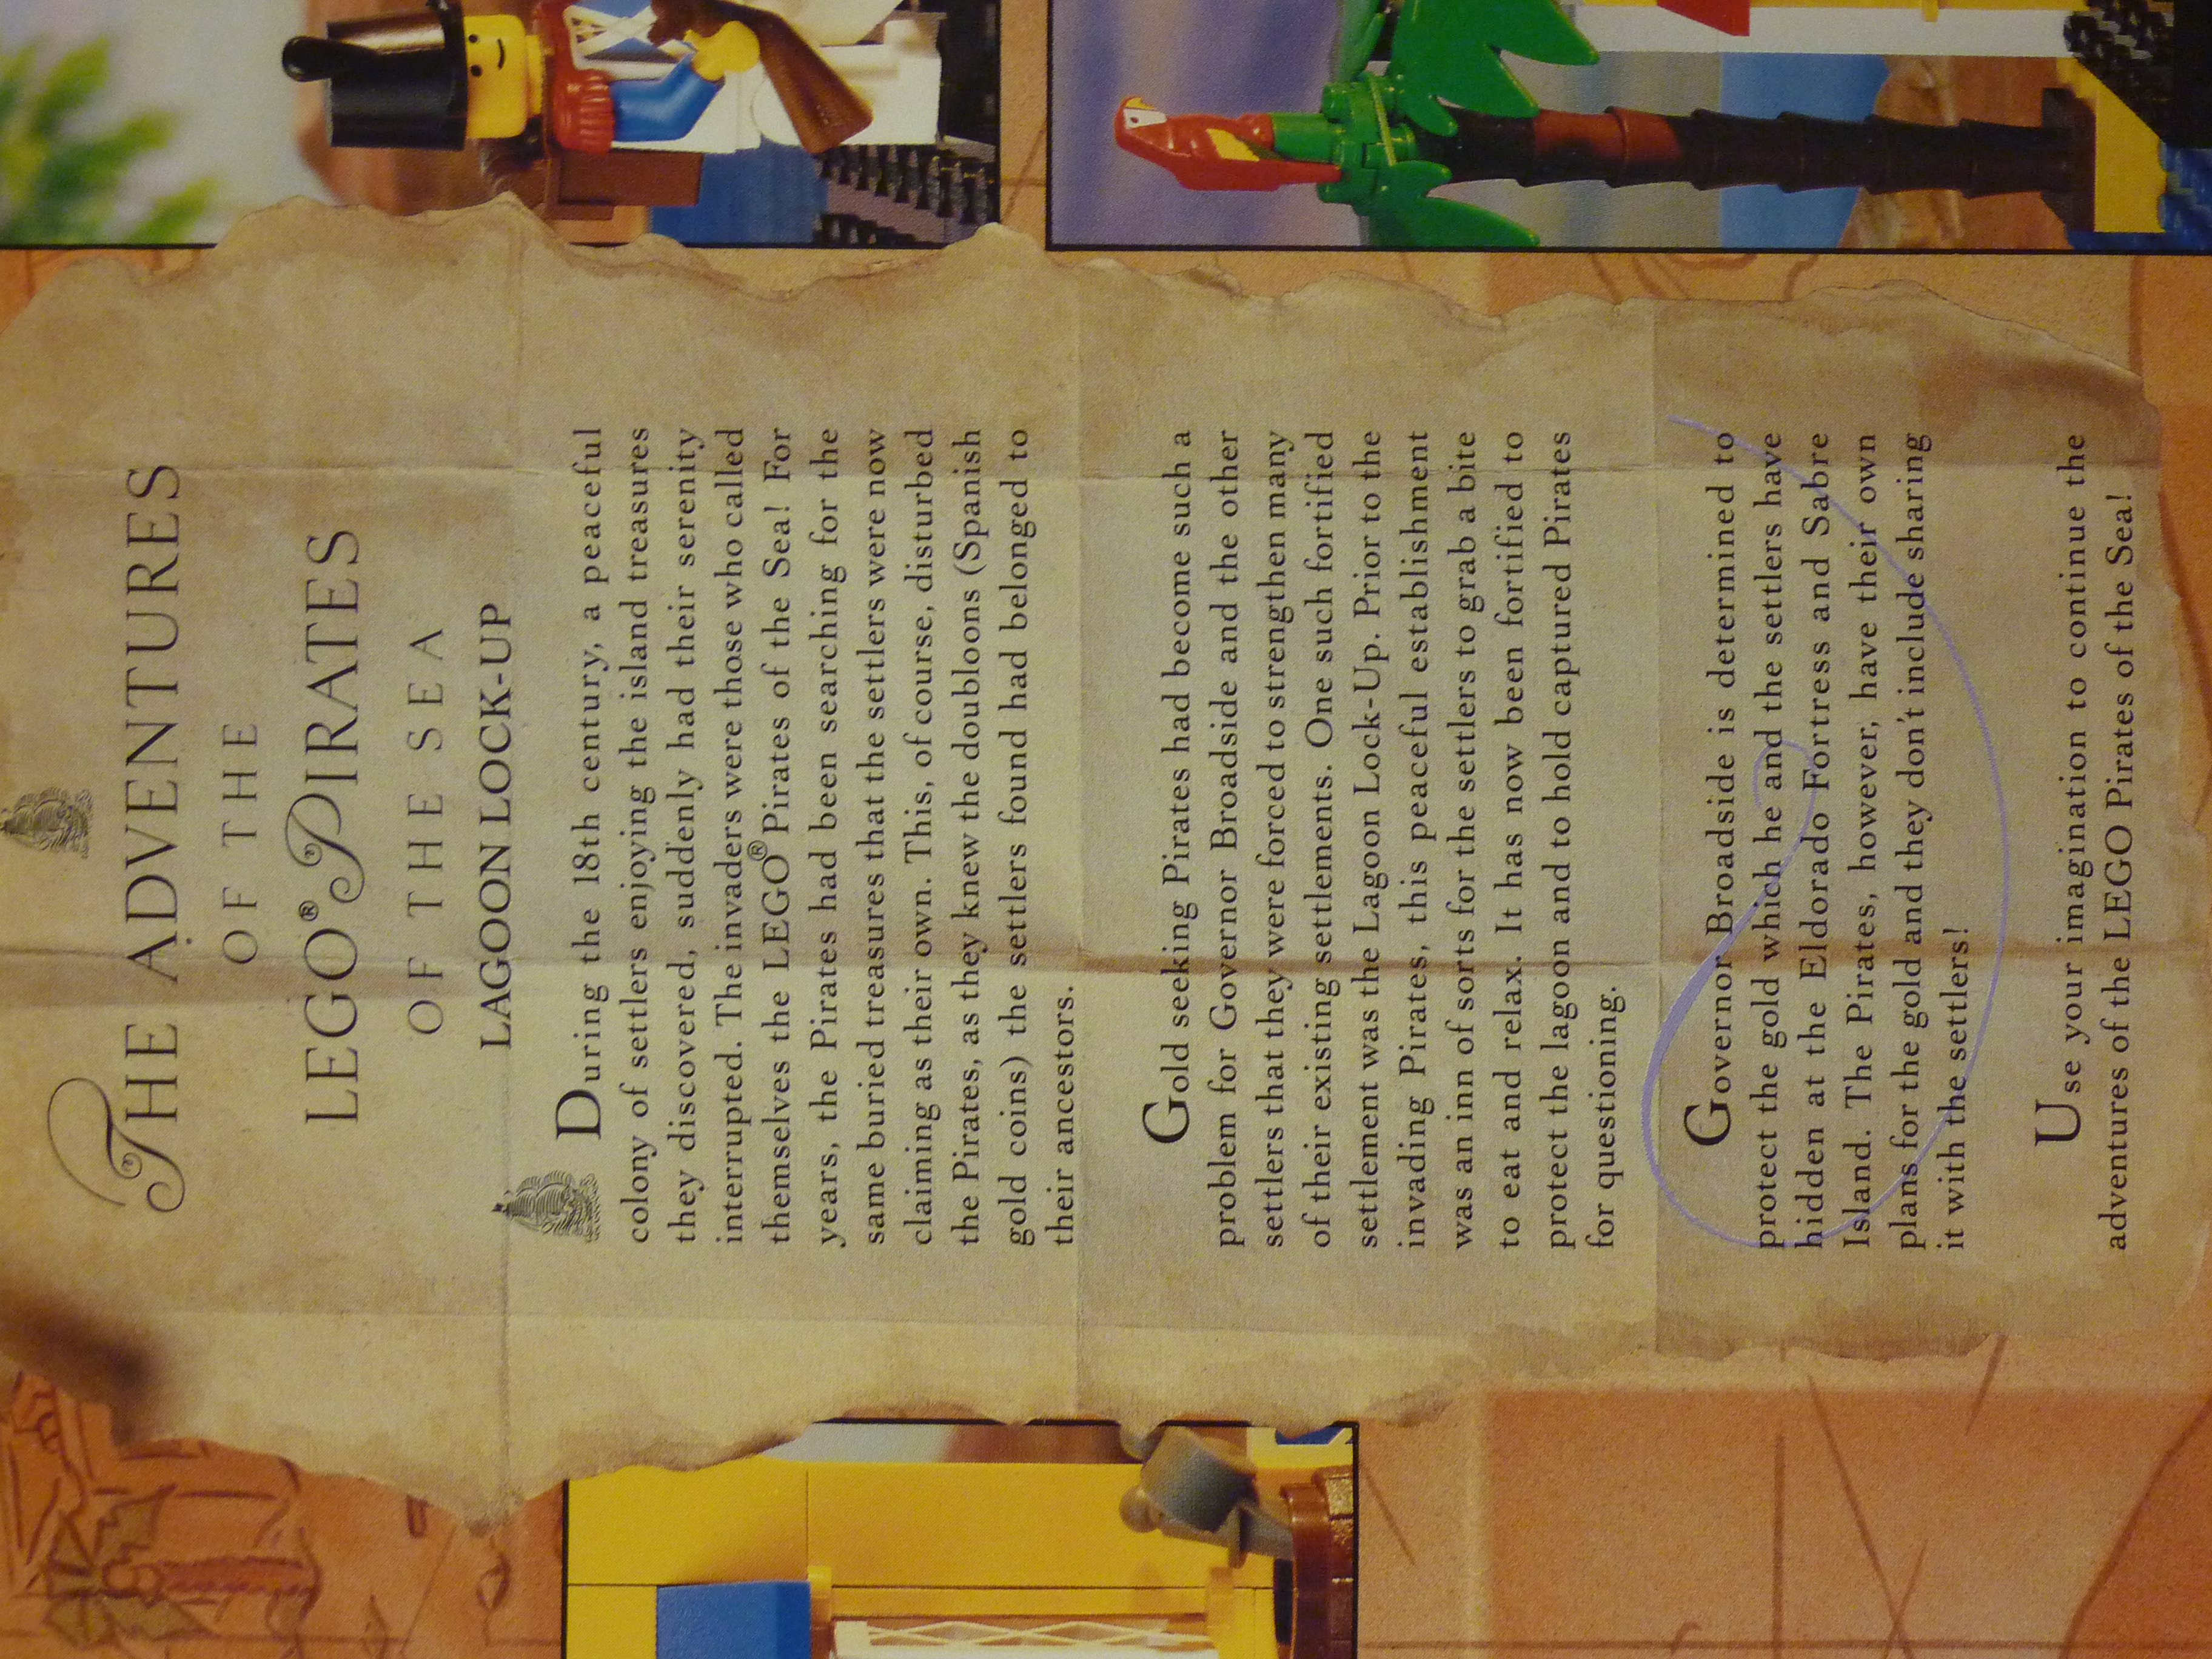 THE ADVENTURES
OF THE
LEGO® PIRATES
OF THE SEA
LAGOON LOCK-UP
During the 18th century, a peaceful
colony of settlers enjoying the island treasures
they discovered, suddenly had their serenity
interrupted. The invaders were those who called
themselves the LEGO® Pirates of the Sea! For
years, the Pirates had been searching for the
same buried treasures that the settlers were now
claiming as their own. This, of course, disturbed
the Pirates, as they knew the doubloons (Spanish
gold coins) the settlers found had belonged to
their ancestors.
Gold seeking Pirates had become such a
problem for Governor Broadside and the other
settlers that they were forced to strengthen many
of their existing settlements. One such fortified
settlement was the Lagoon Lock-Up. Prior to the
invading Pirates, this peaceful establishment
was an inn of sorts for the settlers to grab a bite
to eat and relax. It has now been fortified to
protect the lagoon and to hold captured Pirates
for questioning.
Governor Broadside is determined to
protect the gold which he and the settlers have
hidden at the Eldorado Fortress and Sabre
Island. The Pirates, however, have their own
plans for the gold and they don't include sharing
it with the settlers!
Use your imagination to continue the
adventures of the LEGO Pirates of the Sea!